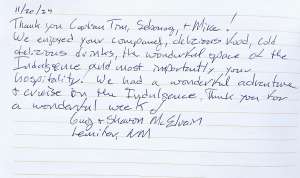 11/20/24
Thank you Captain Tim, & Mike!
We enjoyed your company, delicious food, cold
delicious drinks, the wonderful space of the
Indulgence and most importantly, your
hospitality. We had a wonderful adventure
& cruise on the Indulgence. Thank you for
a wonderful week!
Guy & Sharon McElvain
Lemitar, NM